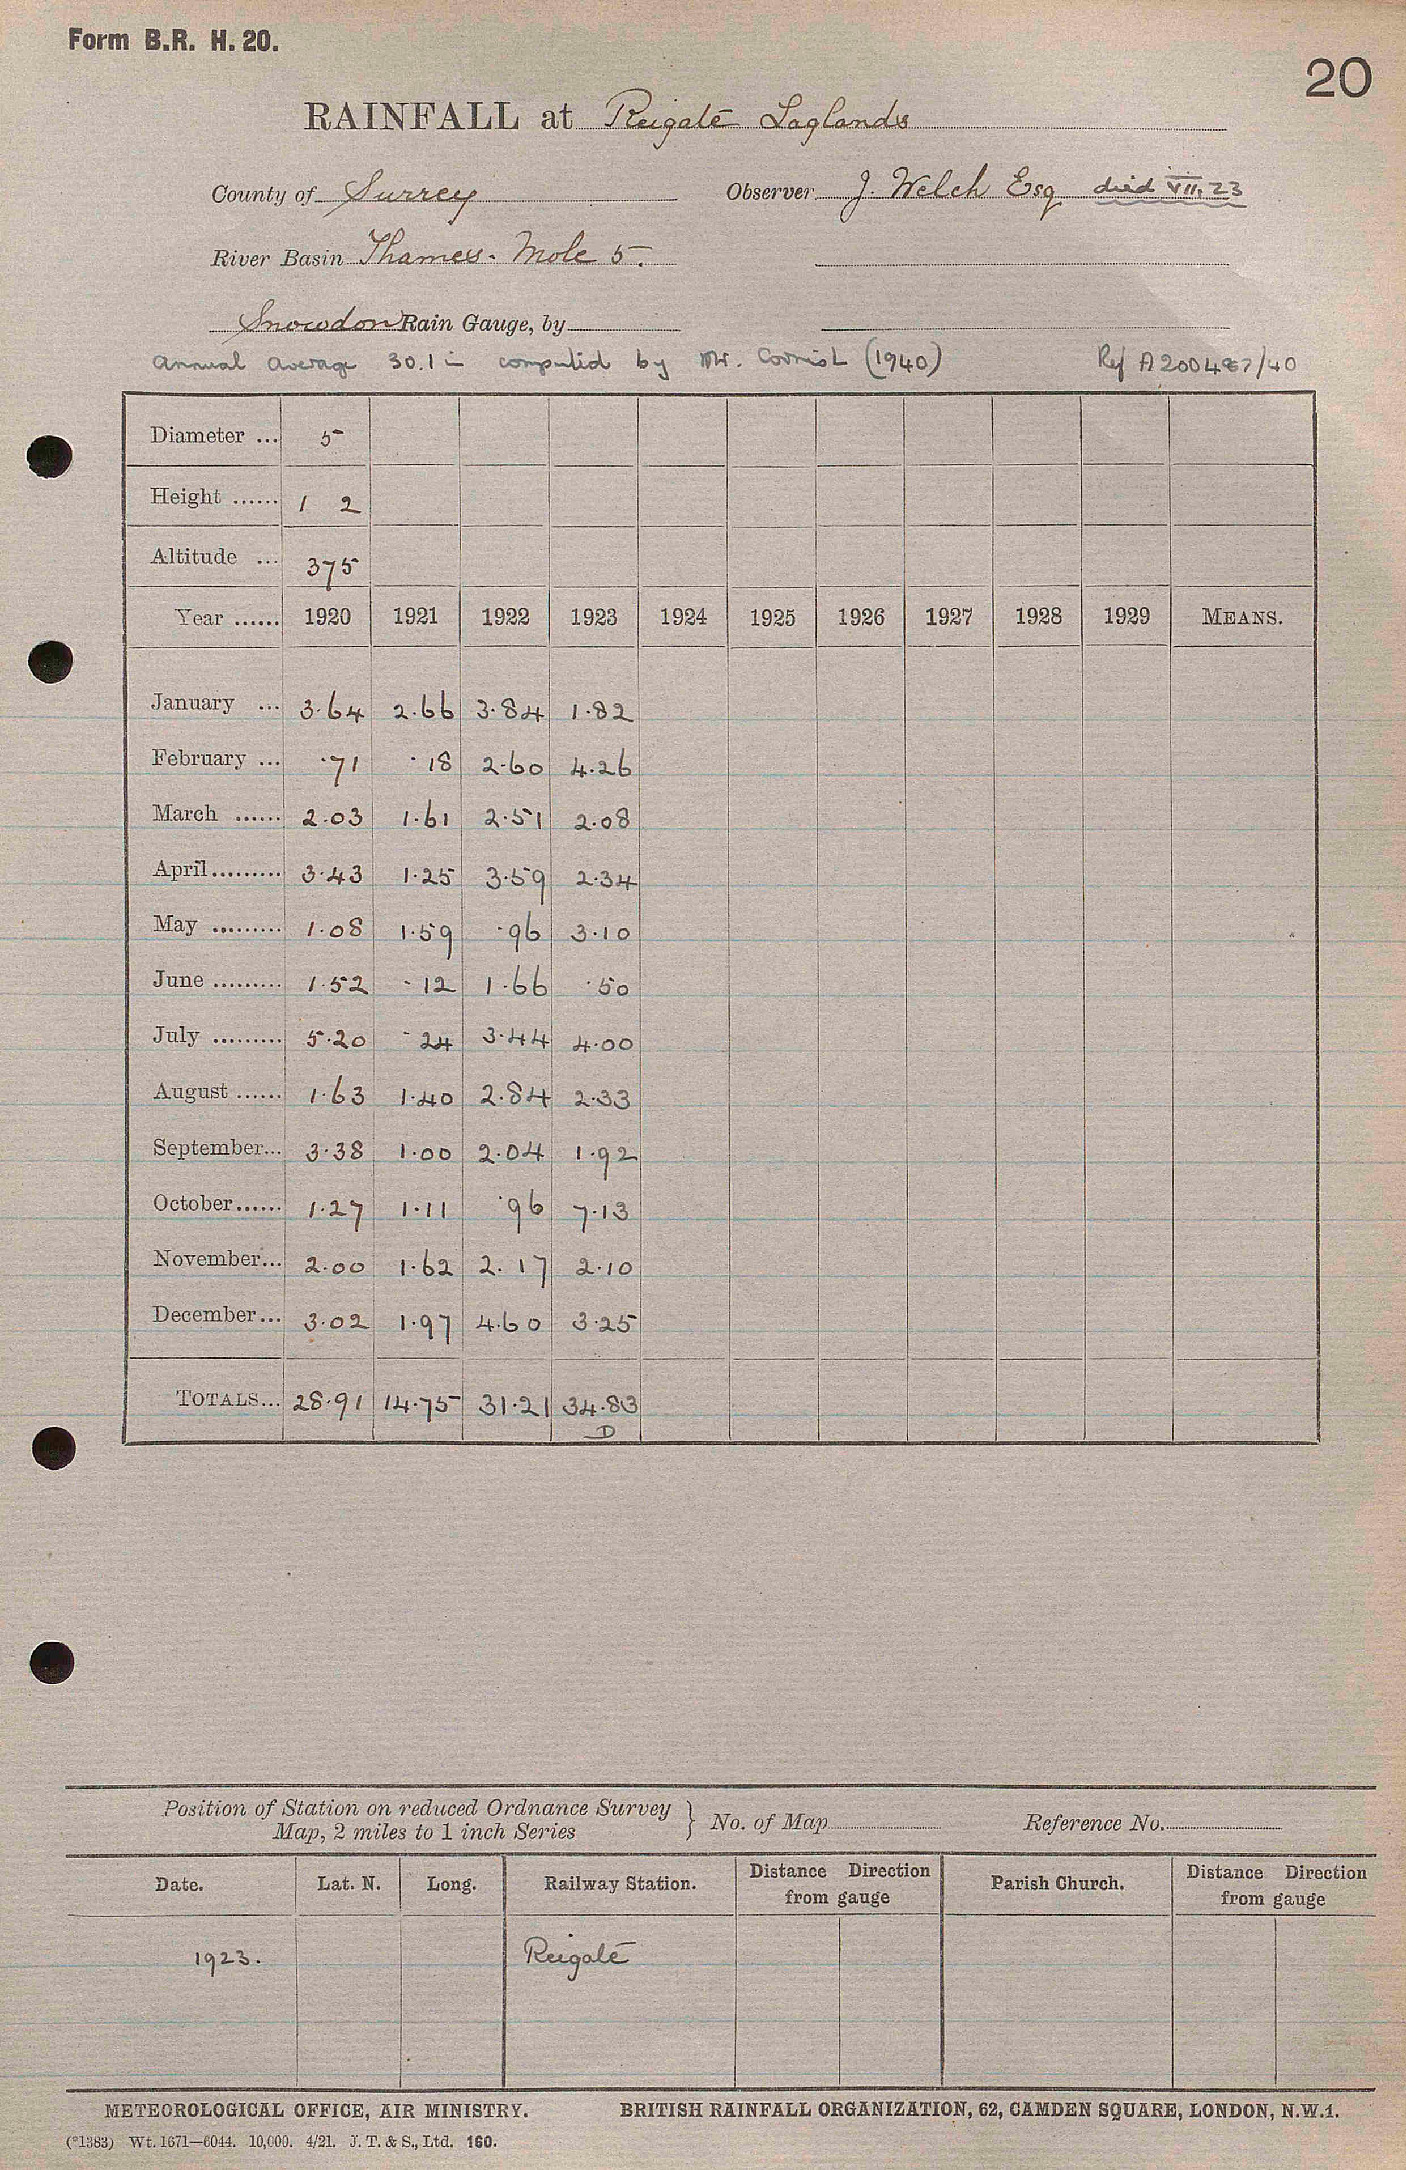 Form B.R. H. 20.
20
RAINFALL at Reigate Laglands
County of Surrey Observer J. Welch Esq died VII. 23
River Basin Thames. Mole 5.
Snowdon Rain Gauge, by
Annual Average 30.1 in computed by Mr. Cornish (1940) Ref A200487/40
Diameter ... 5
Height ...... 1 2
Altitude ... 375
Year ...... 1920 1921 1922 1923 1924 1925 1926 1927 1928 1929 MEANS.
January ... 3.64 2.66 3.84 1.82
February ... .71 .18 2.60 4.26
March ...... 2.03 1.61 2.51 2.08
April......... 3.43 1.25 3.59 2.34
May ......... 1.08 1.59 .96 3.10
June ......... 1.52 .12 1.66 .50
July ......... 5.20 .24 3.44 4.00
August ...... 1.63 1.40 2.84 2.33
September... 3.38 1.00 2.04 1.92
October...... 1.27 1.11 .96 7.13
November... 2.00 1.62 2.17 2.10
December... 3.02 1.97 4.60 3.25
TOTALS... 28.91 14.75 31.21 34.83
D
Position of Station on reduced Ordnance Survey
Map, 2 miles to 1 inch Series } No. of Map Reference No.
Date. Lat. N. Long. Railway Station. Distance Direction from gauge Parish Church. Distance Direction from gauge
1923. Reigate
METEOROLOGICAL OFFICE, AIR MINISTRY. BRITISH RAINFALL ORGANIZATION, 62, CAMDEN SQUARE, LONDON, N.W.1.
(*1383) Wt. 1671—6044. 10,000. 4/21. J. T. & S., Ltd. 160.